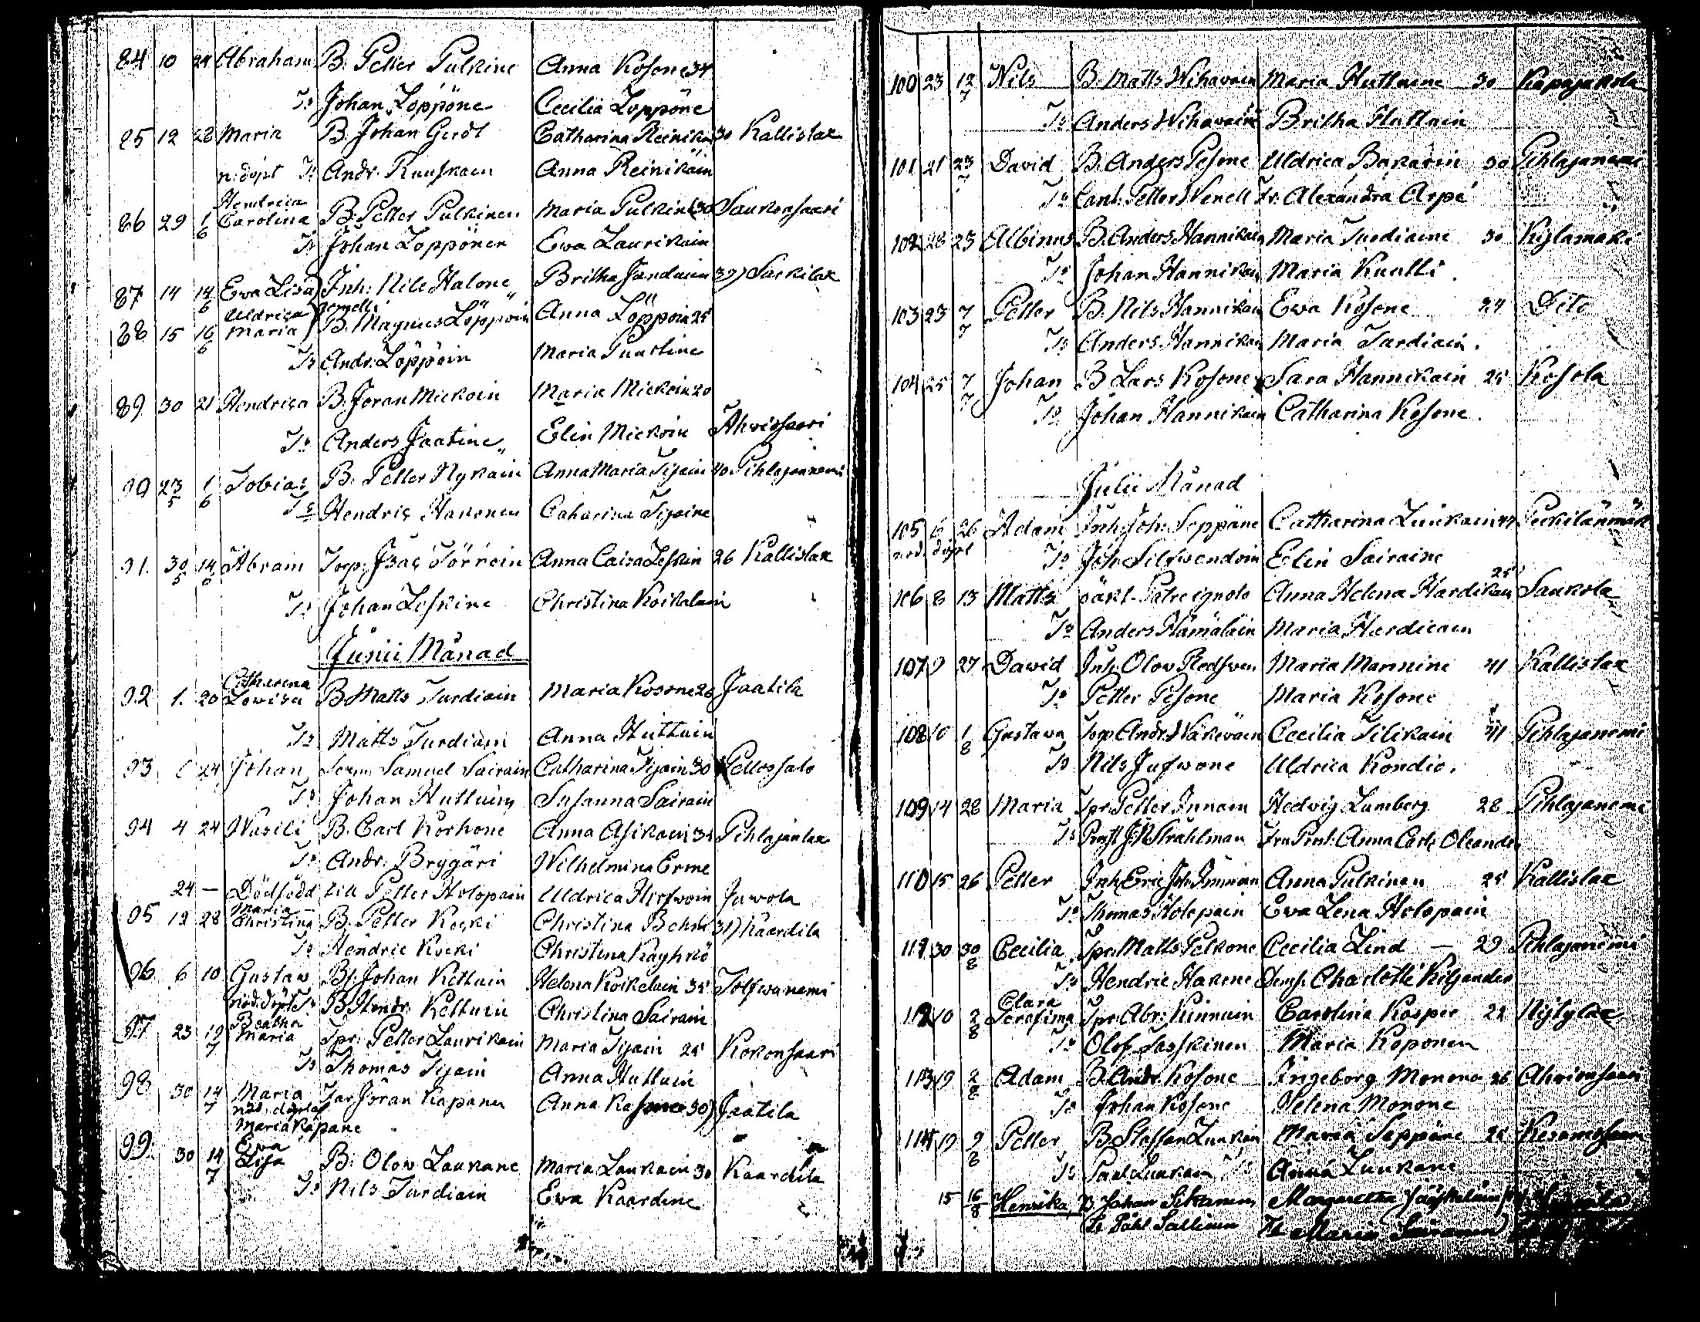 84 10 24 Abraham B. Petter Pulkine Anna Kosone 34
Ts Johan Loppöne Cecilia Loppöne
85 12 28 Maria B. Johan Gerdt Catharina Reinikain 30 Kallislax
nöddöpt Ts Andr. Ruuskain Anna Reinikäin
Hendrica
86 29 1/6 Carolina B. Petter Pulkinen Maria Pulkin 30 Saukonsaari
Ts Johan Loppönen Ewa Laurikain
87 14 14/6 Ewa Lisa Inh: Nils Halone Britha Janduin 39 Särkilax
Uldrica gemelli
88 15 16/6 Maria B. Magnus Löppöin Anna Löppöin 25
Ts Andr. Löppöin Maria Puustine
89 30 21 Hendrica B. Jöran Mickoin Maria Mickoin 20
Ts Anders Jaatine Elin Mickoin Ahvisaari
90 23/5 1/6 Tobias B. Petter Nykäin Anna Maria Tijain 40 Pihlajaniemi
Ts Hendric Hanonen Catharina Tijaine
91 30/5 14/6 Abram Torp: Isac Törröin Anna Caisa Leskin 26 Kallislax
Ts Johan Leskine Christina Koikalain
Junii Månad
Catharina
92 1. 20 Lovisa B. Matts Turdiain Maria Kosone 26 Jaatila
Ts Matts Turdiain Anna Huttuin
93 24 Johan Samuel Sairain Catharina Tijain 30 Pellossalo
Ts Johan Huttuin Susanna Sairain
94 4 24 Wasili B. Carl Korhone Anna Asikain 34 Pihlajanlax
Ts Andr. Brygäri Wilhelmina Erme
24 — Dödfödd till Petter Holopain Uldrica Hirfwoin Juvola
Maria
95 12 28 Christina B. Petter Kocki Christina Behm 31 Kaardila
Ts Hendric Kocki Christina Käyhkö
96 6 10 Gustaw B. Johan Kettuin Helena Koikelain 35 Tolfwanemi
nöd.döpt Ts B. Hendr. Kettuin Christina Sairain
Beatha
97 23 12/7 Maria Spr: Petter Laurikain Maria Tijain 25 Kokonsaari
Ts Thomas Tijain Anna Huttuin
98 30 14/7 Maria Jöran Kapanen Anna Kasone 30 Jaatila
nöd. döpt af
Maria Kapane
Ewa
99. 30 14/7 Lisa B: Olow Laukane Maria Laukain 30 Kaardila
Ts Nils Turdiain Ewa Kaardine
100 23 12/7 Nils B. Matts Wihavain Maria Huttuine 30 Kapajakola
Ts Anders Wihavain Britha Huttuin
101 21 23/7 David B. Anders Pesone Uldrica Bakarin 30 Pihlajanemi
Ts Cant: Petter Wenell Fr. Alexandra Arpe
102 23 23 Albinus B. Anders Hannikain Maria Turdiaine 30 Kislamäki
Ts Johan Hannikain Maria Kuutti.
103 23 7/7 Petter B. Nils Hannikain Ewa Kosone 24 Dito
Ts Anders Hannikain Maria Turdiain.
104 25 7/7 Johan B Lars Kosone Sara Hannikain 25 Kosola
Ts Johan Hannikain Catharina Kosone
Julii Månad
105 6 26 Adam Inh: Joh: Seppäne Catharina Luukain 44 Peckilänmäki
nöd. döpt Ts Joh. Silfwendoin Elin Sairaine
106 8 13 Matts oäkt. Patre ignoto Anna Helena Hardikain 25 Saukola
Ts Anders Hämäläin Maria Hardicain
107 9 27 Dawid Inh. Olow Redfwen Maria Mannine 41 Kallislax
Ts Petter Pesone Maria Kosone
108 10 1/8 Gustawa Torp. Andr. Wäkeväin Cecilia Tilikain 41 Pihlajanemi
Ts Nils Jufwone Uldrica Kondie.
109 14 28 Maria Spr. Petter Innain Hedvig Lumberg 28 Pihlajanemi
Ts Prost J. W. Stråhlman Fru Prost. Anna Carls Oleander
110 15 26 Petter Inh. Eric Joh. Imin Anna Pulkinen 25 Kallislax
Ts Thomas Holopain Ewa Lena Holopain
111 30 30/8 Cecilia Spr. Matts Pelkone Cecilia Lind — 29 Pihlajanemi
Ts Hendric Hakone Dems. Charlotte Kiljander
Clara
112 10 2/8 Serafima Spr. Abr. Kinnuin Carolina Kosper 22 Nyslylax
Ts Olof Saskinen Maria Koponen
113 19 2/8 Adam B. Andr. Kosone Ingeborg Monone 26 Ahvionsaari
Ts Johan Kosone Helena Monone
114 19 9/8 Petter B. Staffan Luukain Maria Seppäne 25 Kesamosaari
Ts Paul Luukain Anna Luukane
15 16/8 Henrika B. Johan Sikanen Margaretha
Ts Pähl Sallinen Ts Maria Sairanen